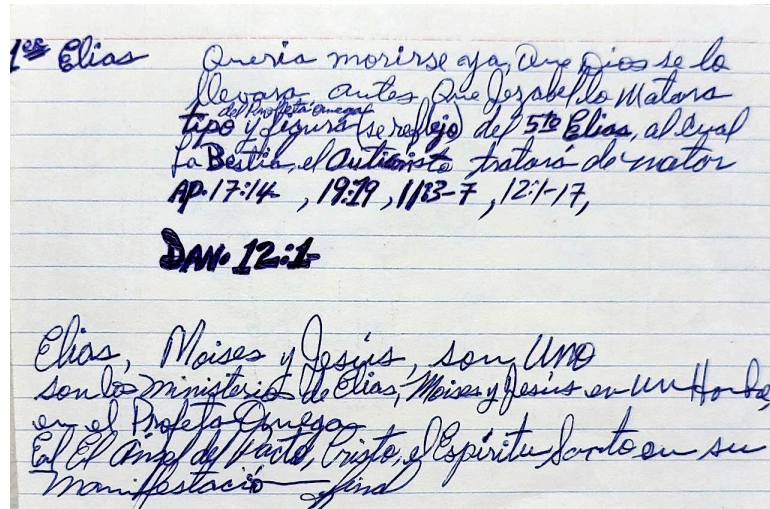 1er Elias Queria morirse ya, Que Dios se lo
llevara antes que Jezabel lo Matara
del Profeta Omega
tipo y figura (se reflejo) del 5to Elias, al cual
la Bestia, el Anticristo tratará de mator
AP. 17:14 , 19:19 , 11:3-7 , 12:1-17,
DAN. 12:1
Elias, Moises y Jesús, son UNO
son los ministerios de Elias, Moises y Jesús en un Hombre,
en el Profeta Omega
Es El Angel del Pacto, Cristo, el Espíritu Santo en su
manifestació final